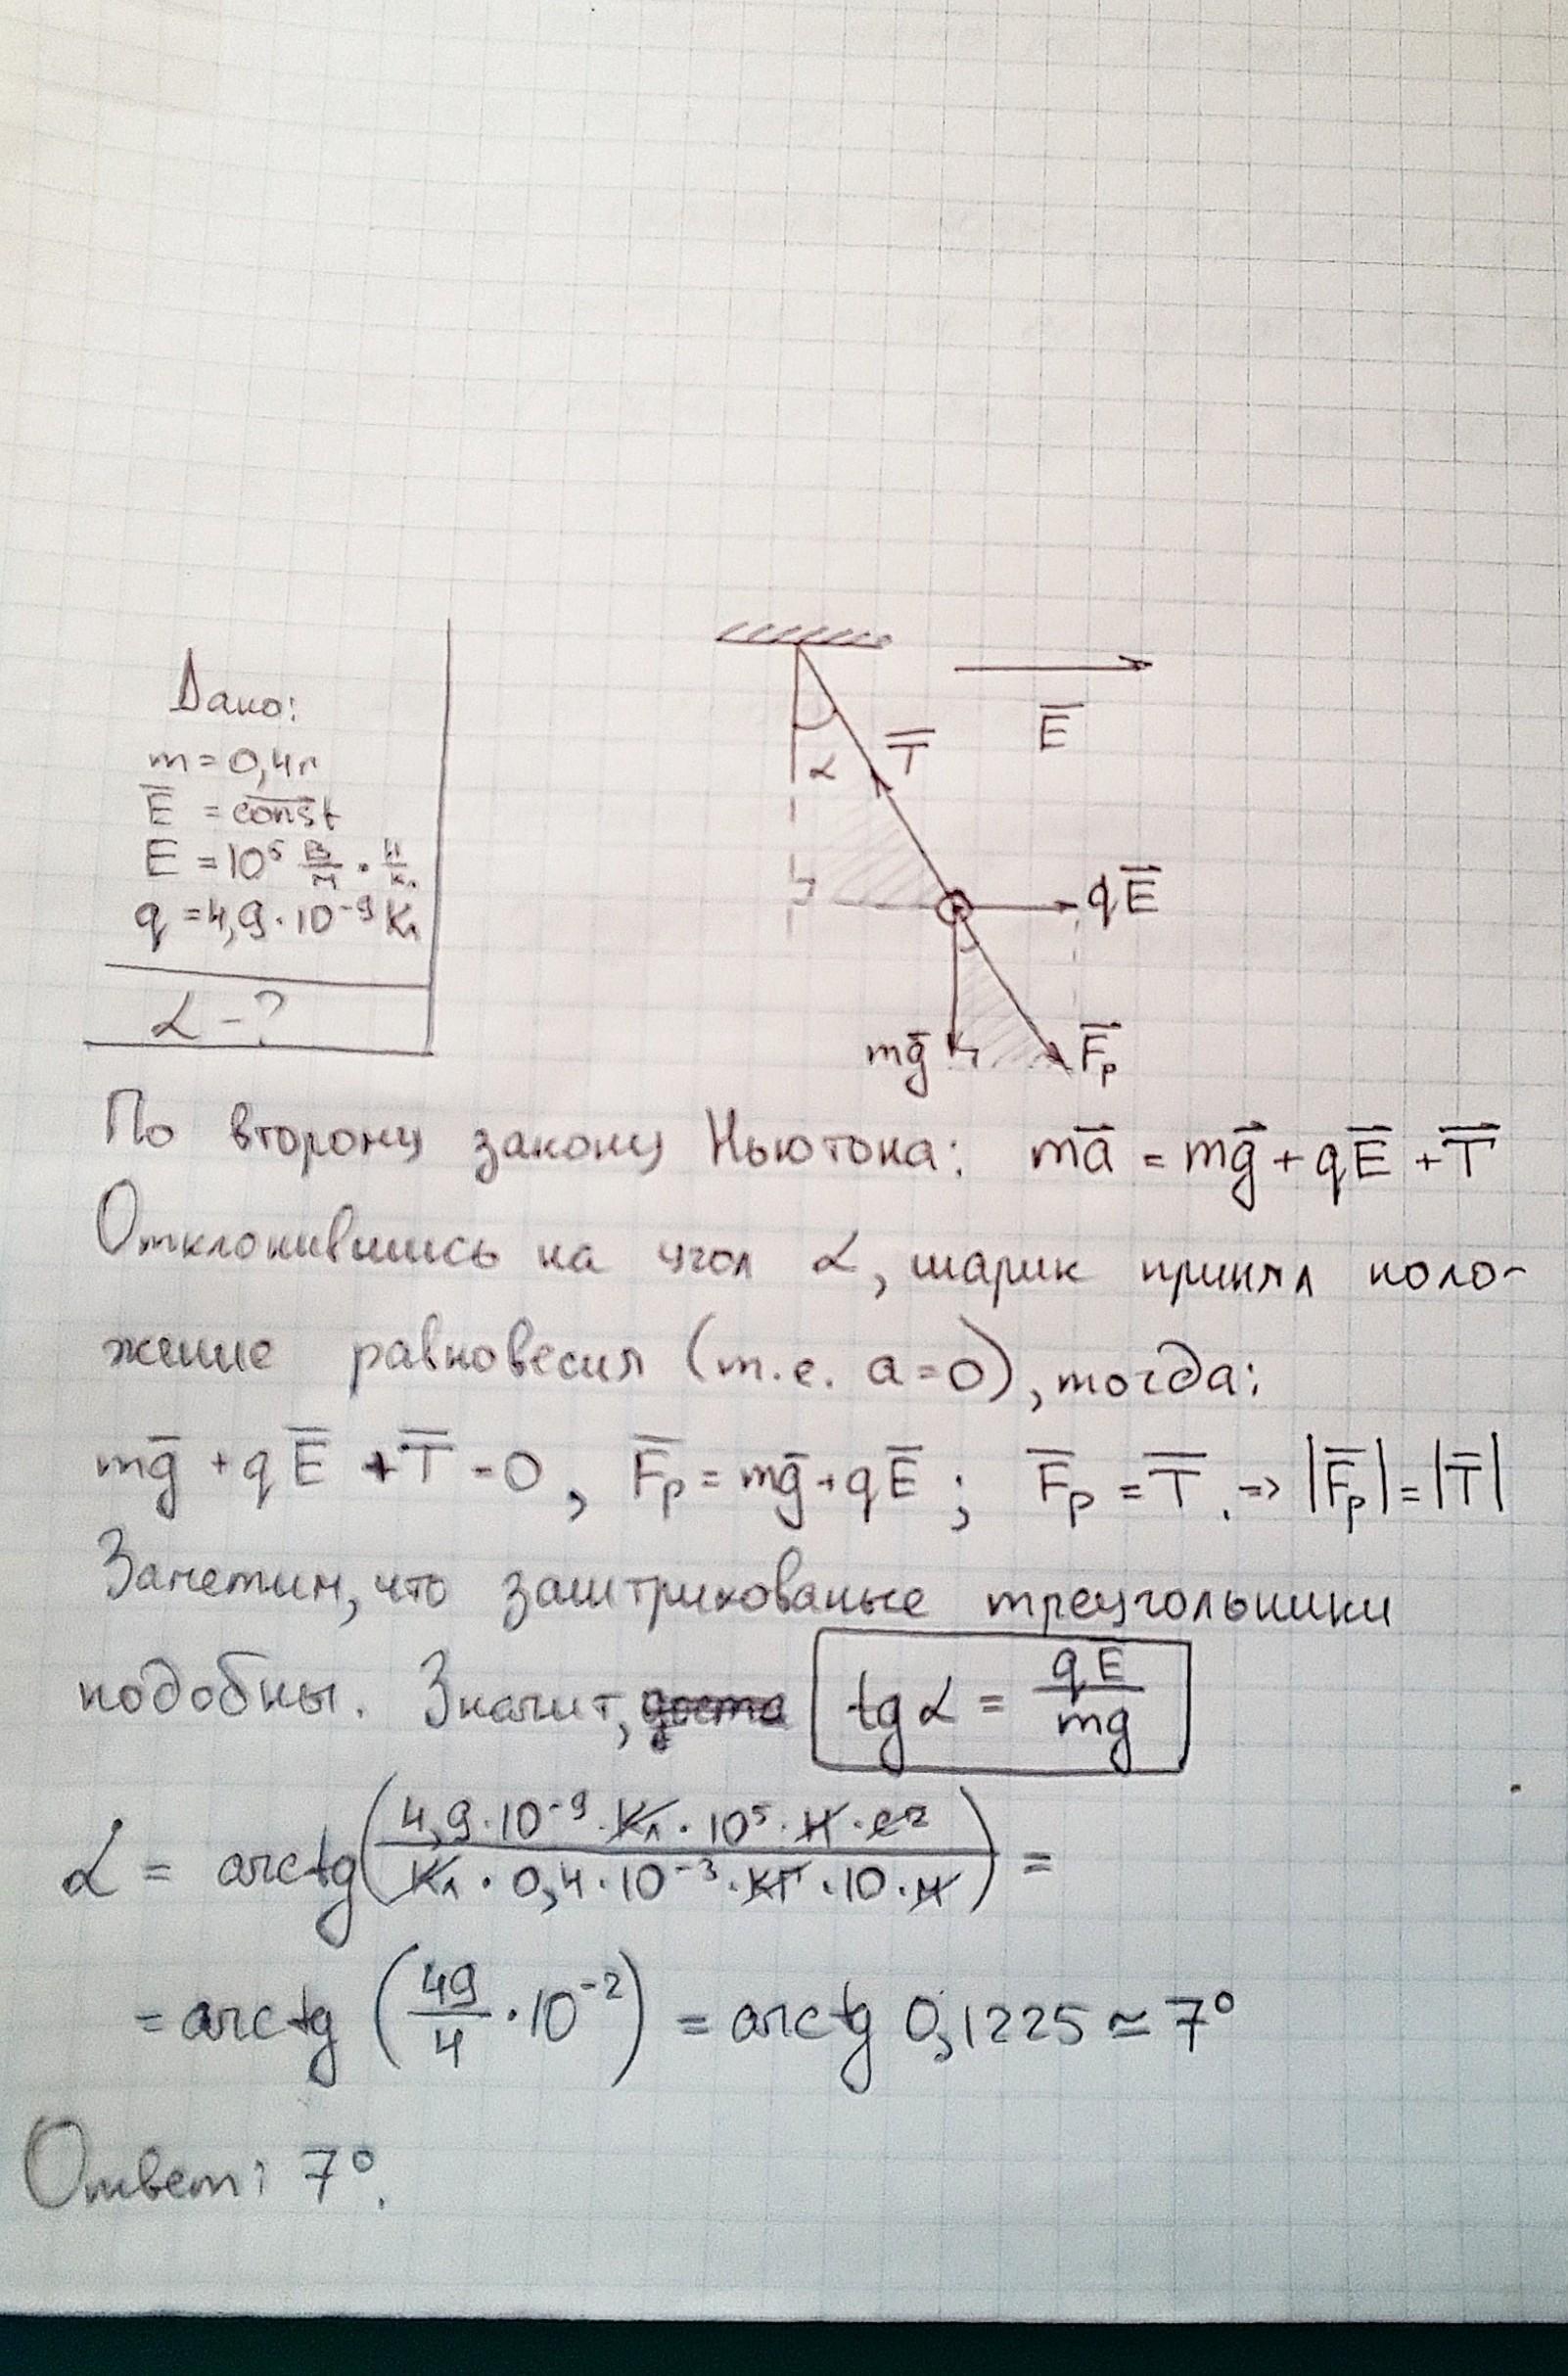 Дано:
m = 0,4г
E̅ = const
E = 10⁵ В/м · Н/Кл
q = 4,9·10⁻⁹ Кл
α - ?
E̅
T̅
α
qE̅
mg̅
F̅р
По второму закону Ньютона: ma̅ = mg̅ + qE̅ + T̅
Отклонившись на угол α, шарик принял поло-
жение равновесия (т.е. a = 0), тогда:
mg̅ + qE̅ + T̅ = 0, F̅р = mg̅ + qE̅; F̅р = T̅. => |F̅р| = |T̅|
Заметим, что заштрихованые треугольники
подобны. Значит, tg α = qE/mg
α = arctg(4,9·10⁻⁹·Кл·10⁵·Н·с²/Кл·0,4·10⁻³·кг·10·м) =
= arctg (49/4 · 10⁻²) = arctg 0,1225 ≃ 7°
Ответ: 7°.